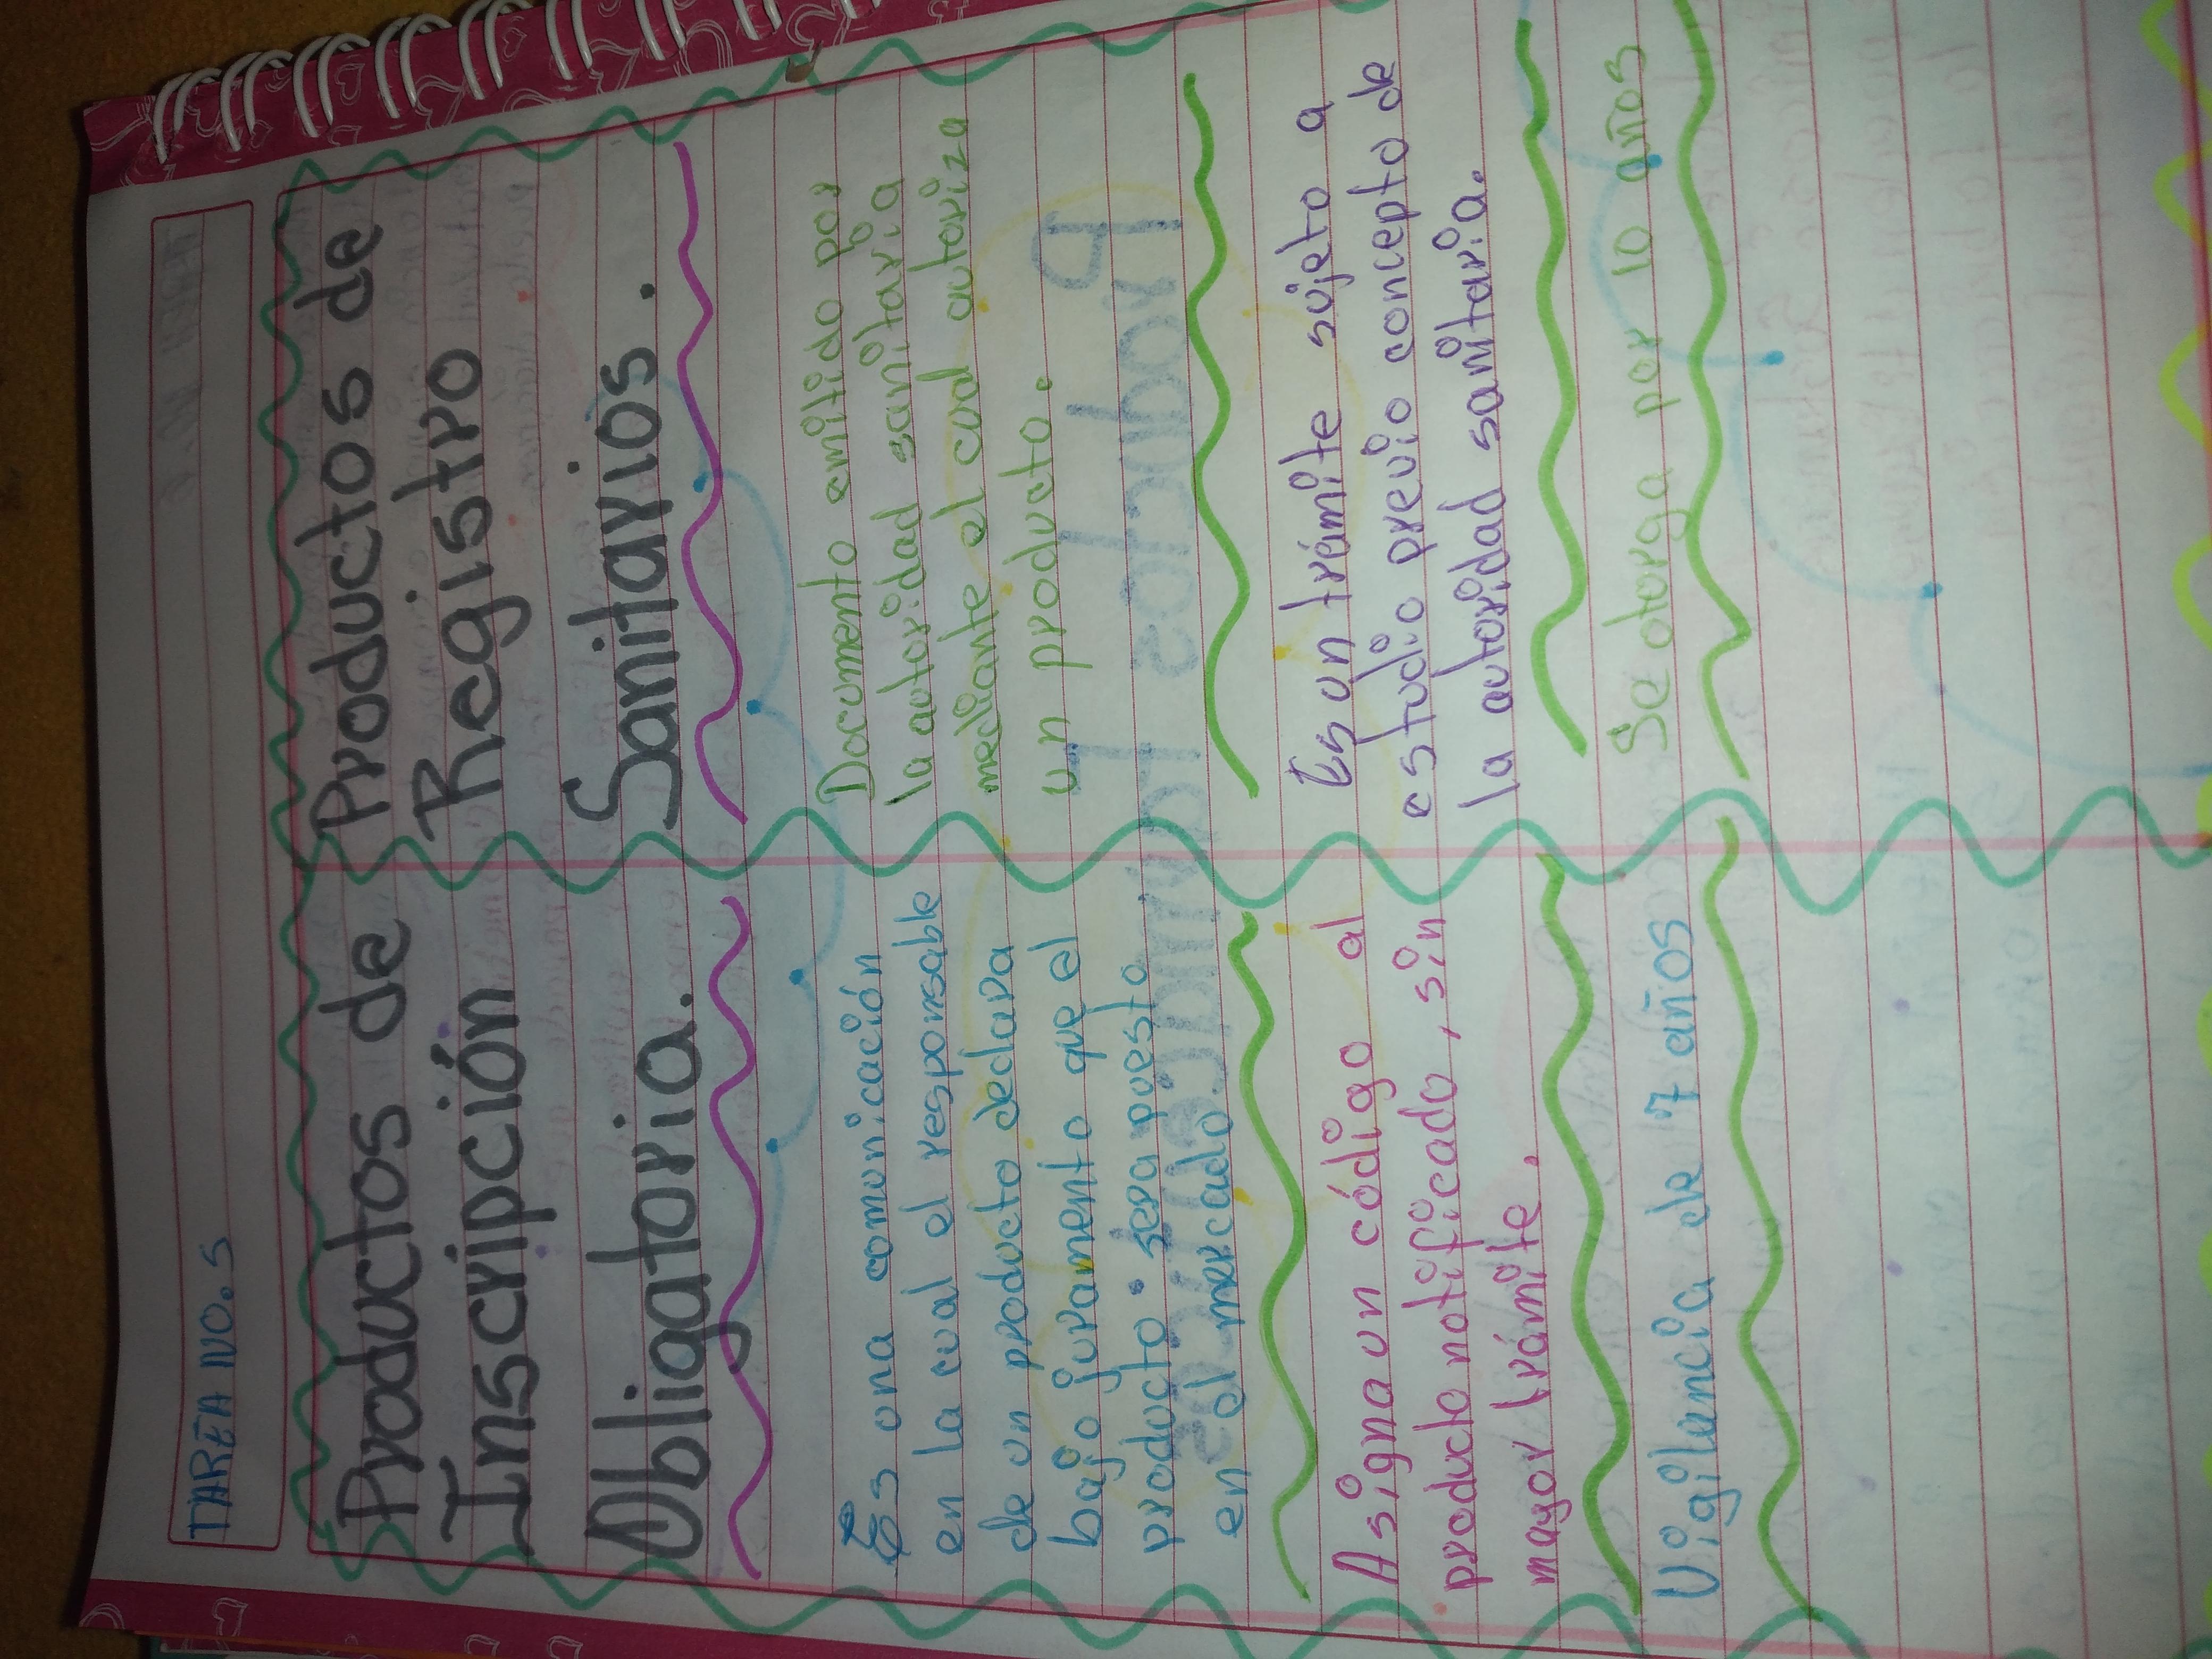 TAREA NO. 5
Productos de
Inscripción
Obligatoria.
Es una comunicación
en la cual el responsable
de un producto declara
bajo juramento que el
producto sera puesto
en el mercado.
Asigna un código al
producto notificado, sin
mayor trámite.
Vigilancia de 7 años
Productos de
Registro
Sanitarios.
Documento emitido por
la autoridad sanitaria
mediante el cual autoriza
un producto.
Es un trámite sujeto a
estudio previo concepto de
la autoridad sanitaria.
Se otorga por 10 años